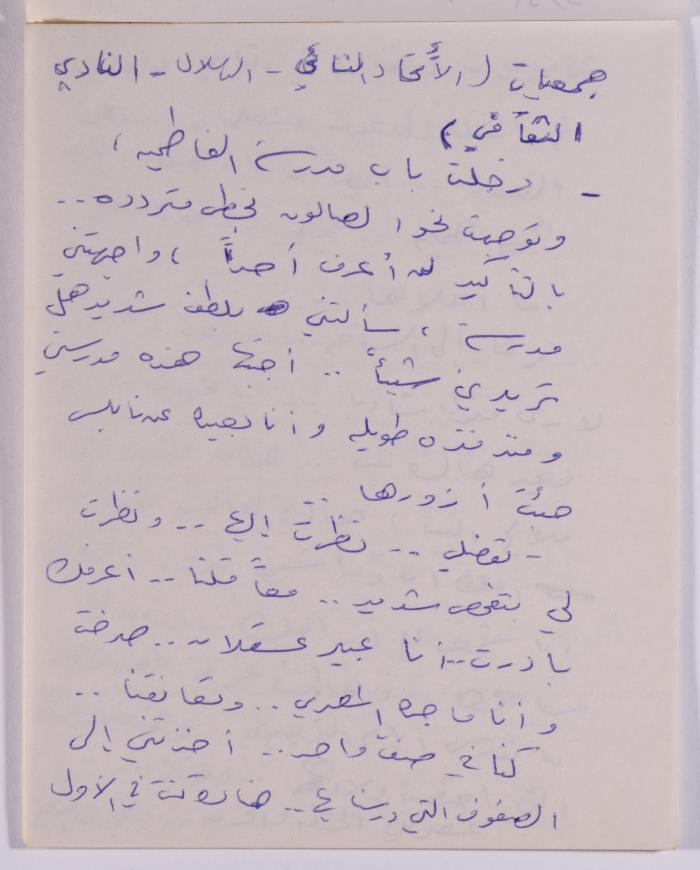 جمعيات (الأتحاد النسائي - الهلال - النادي
الثقافي)
- دخلت باب مدرسة الفاطميه ،
وتوجهت نحو الصالون بخطى متردده ..
بالتأكيد لن أعرف أحداً ، واجهتني
مدرسة ، سألتني بلطف شديد هل
تريدين شيئاً .. أجبتها هذه مدرستي
ومنذ فتره طويله وأنا بعيده عن نابلس
جئت أزورها ..
- تفضلي .. نظرت إليها .. ونظرت
لي بتفحص شديد .. معاً قلنا .. أعرفك
بادرت .. انا عبير عسقلان .. صرخت
وأنا ماجده المصري .. وتعانقنا ..
كنا في صف واحد .. أخذتني إلى
الصفوف التي درسنا بها .. في الأول